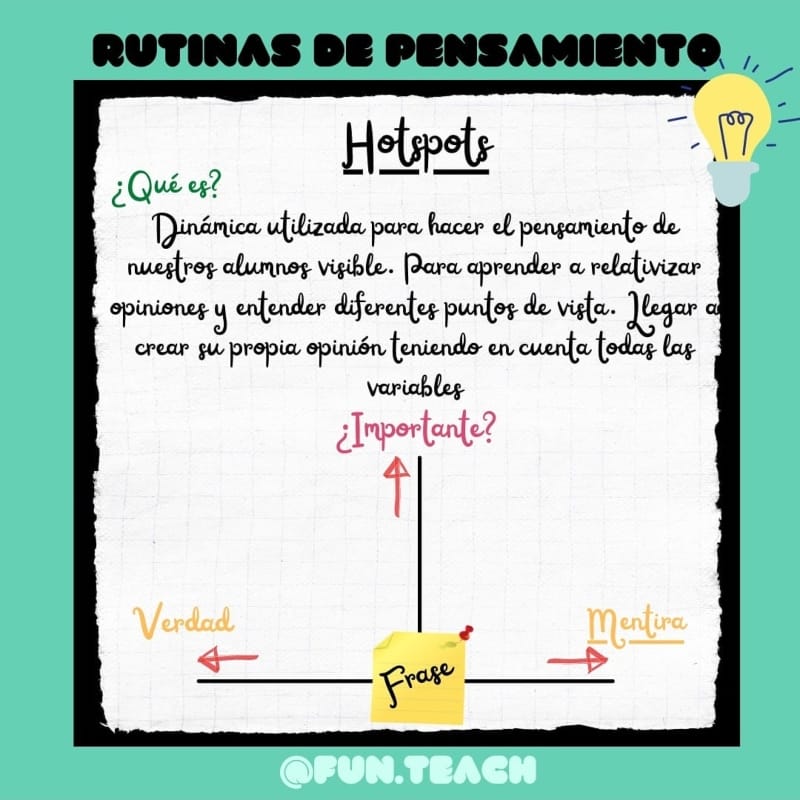 RUTINAS DE PENSAMIENTO
Hotspots
¿Qué es?
Dinámica utilizada para hacer el pensamiento de
nuestros alumnos visible. Para aprender a relativizar
opiniones y entender diferentes puntos de vista. Llegar a
crear su propia opinión teniendo en cuenta todas las
variables
¿Importante?
Verdad
Mentira
Frase
@FUN.TEACH